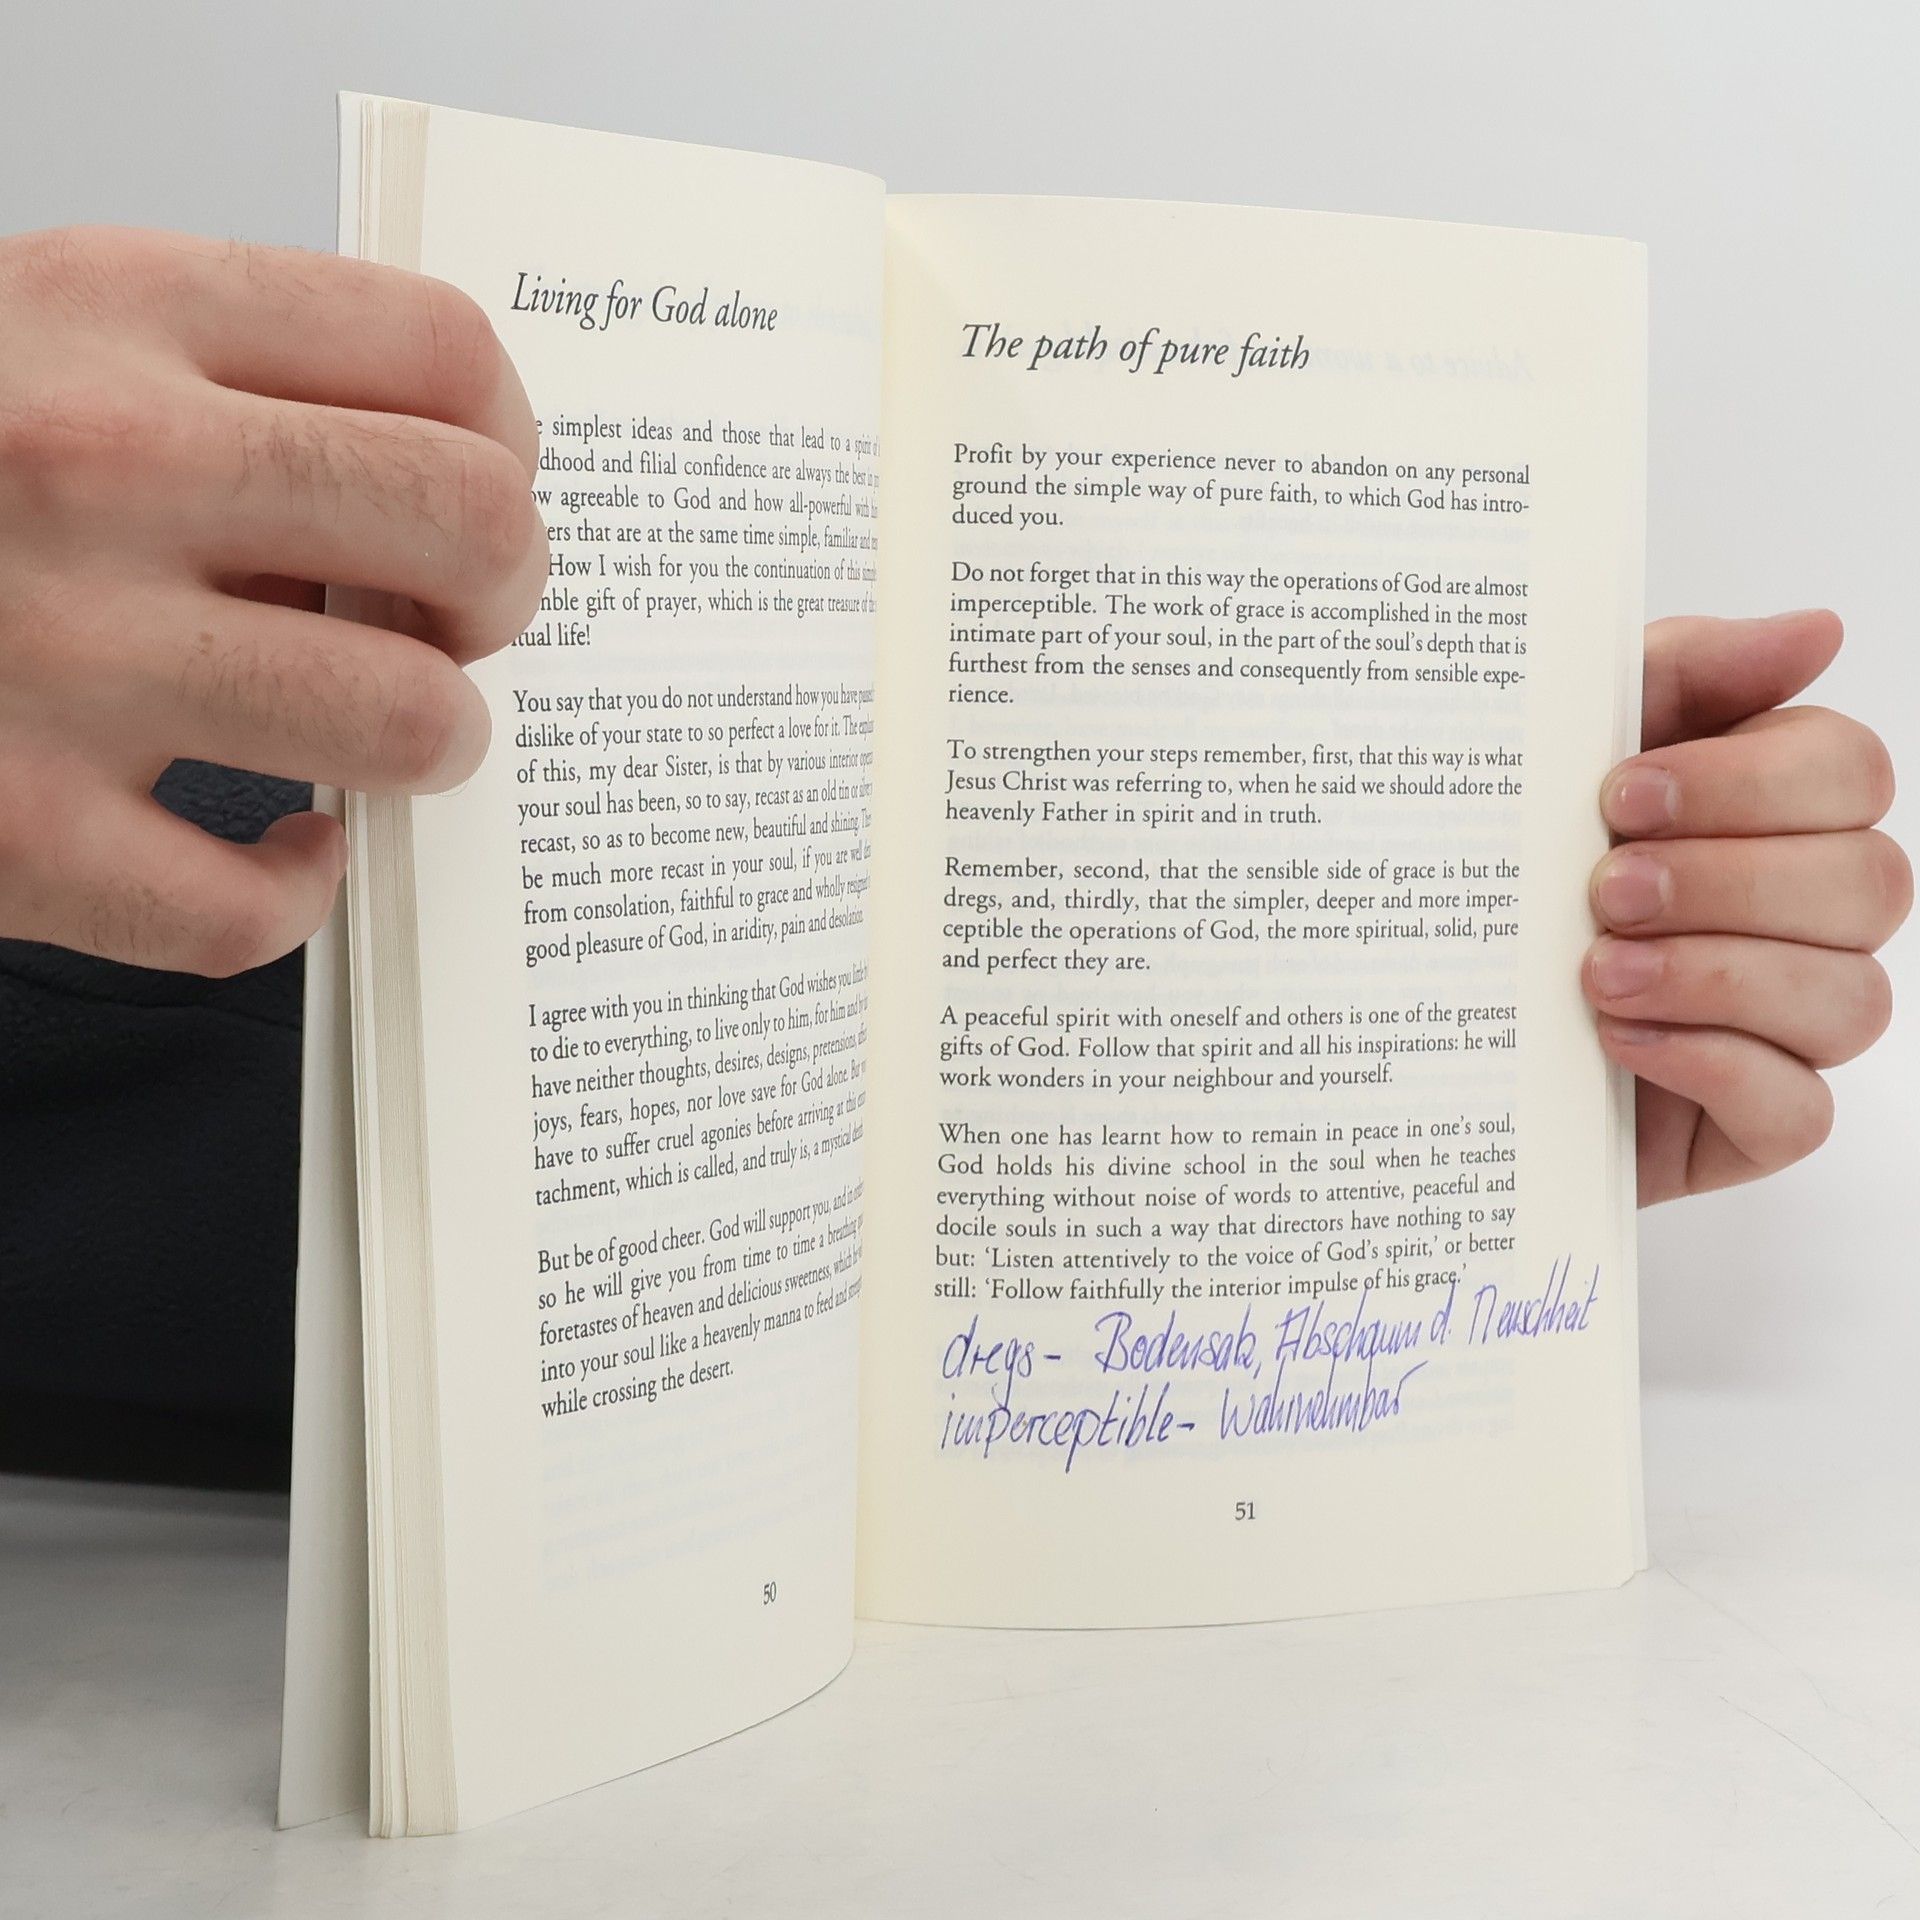 Living for God alone
simplest ideas and those that lead to a spirit
and filial confidence are always the best in
agreeable to God and how all-powerful with
that are at the same time simple, familiar and
How I wish for you the continuation of this
gift of prayer, which is the great treasure of
life!
You say that you do not understand how you have
dislike of your state to so perfect a love for it. The
of this, my dear Sister, is that by various interior
your soul has been, so to say, recast as an old tin or
recast, so as to become new, beautiful and shining.
be much more recast in your soul, if you are well
from consolation, faithful to grace and wholly
good pleasure of God, in aridity, pain and desolation.
I agree with you in thinking that God wishes you
to die to everything, to live only to him, for him and
have neither thoughts, desires, designs, pretensions,
joys, fears, hopes, nor love save for God alone. But
have to suffer cruel agonies before arriving at this
tachment, which is called, and truly is, a mystical
But be of good cheer. God will support you, and in
so he will give you from time to time a breathing
foretastes of heaven and delicious sweetness, which
into your soul like a heavenly manna to feed and
while crossing the desert.
50
The path of pure faith
Profit by your experience never to abandon on any personal
ground the simple way of pure faith, to which God has intro-
duced you.
Do not forget that in this way the operations of God are almost
imperceptible. The work of grace is accomplished in the most
intimate part of your soul, in the part of the soul's depth that is
furthest from the senses and consequently from sensible expe-
rience.
To strengthen your steps remember, first, that this way is what
Jesus Christ was referring to, when he said we should adore the
heavenly Father in spirit and in truth.
Remember, second, that the sensible side of grace is but the
dregs, and, thirdly, that the simpler, deeper and more imper-
ceptible the operations of God, the more spiritual, solid, pure
and perfect they are.
A peaceful spirit with oneself and others is one of the greatest
gifts of God. Follow that spirit and all his inspirations: he will
work wonders in your neighbour and yourself.
When one has learnt how to remain in peace in one's soul,
God holds his divine school in the soul when he teaches
everything without noise of words to attentive, peaceful and
docile souls in such a way that directors have nothing to say
but: 'Listen attentively to the voice of God's spirit,' or better
still: 'Follow faithfully the interior impulse of his grace.'
dregs - Bodensatz, Abschaum d. Menschheit
imperceptible - Wahrnehmbar
51